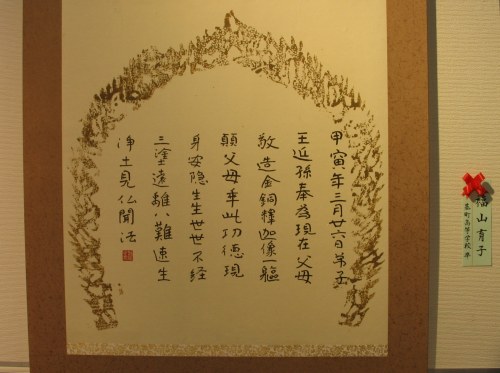 甲寅年三月廿六日弟子
王延孫奉為現在父母
敬造金銅釋迦像一軀
願父母乗此功徳現
身安隠生生世世不経
三塗遠離八難速生
浄土見仏聞法
福山育子
町高等学校